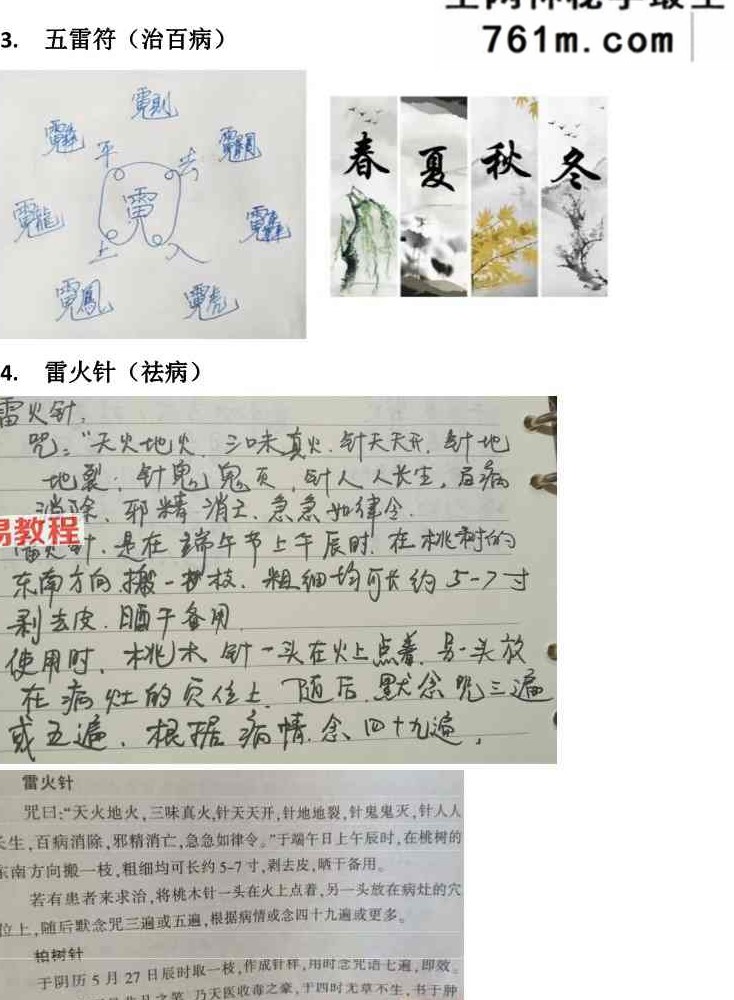 761m.com
3. 五雷符（治百病）
平
去
上
入
春
夏
秋
冬
4. 雷火针（祛病）
雷火针，
咒：“天火地火、三味真火、针天天开，针地
地裂；针鬼鬼灭，针人人长生，百病
消除、邪精消亡、急急如律令.
易教程
雷火针，是在端午节上午辰时，在桃树的
东南方向搬一枝，粗细均可长约5-7寸
剥去皮，晒干备用.
使用时，桃木针一头在火上点着，另一头放
在病灶的穴位上，随后默念咒三遍
或五遍、根据病情念四十九遍，
雷火针
咒曰：“天火地火，三味真火，针天天开，针地地裂，针鬼鬼灭，针人人
长生，百病消除，邪精消亡，急急如律令。”于端午日上午辰时，在桃树的
东南方向搬一枝，粗细均可长约5-7寸，剥去皮，晒干备用。
若有患者来求治，将桃木针一头在火上点着，另一头放在病灶的穴
位上，随后默念咒三遍或五遍，根据病情或念四十九遍或更多。
柏树针
于阴历5月27日辰时取一枝，作成针样，用时念咒语七遍，即效。
乃天医收毒之豪，于四时无草不生，书于肿